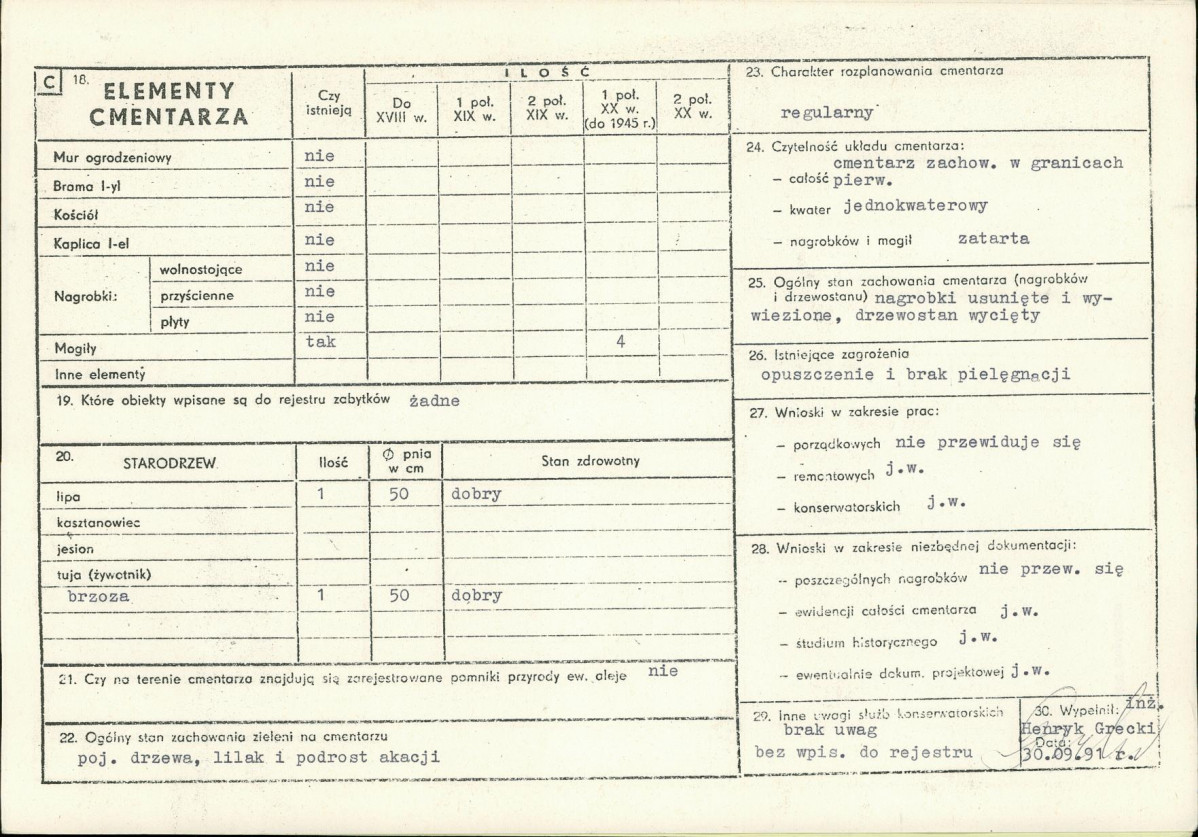 C 18. ELEMENTY CMENTARZA
Czy istnieją
ILOŚĆ
Do XVIII w.
1 poł. XIX w.
2 poł. XIX w.
1 poł. XX w. (do 1945 r.)
2 poł. XX w.
Mur ogrodzeniowy nie
Brama I-yl nie
Kościół nie
Kaplica I-el nie
Nagrobki: wolnostojące nie
przyścienne nie
płyty nie
Mogiły tak 4
Inne elementy
19. Które obiekty wpisane są do rejestru zabytków żadne
20. STARODRZEW Ilość Ø pnia w cm Stan zdrowotny
lipa 1 50 dobry
kasztanowiec
jesion
tuja (żywotnik)
brzoza 1 50 dobry
21. Czy na terenie cmentarza znajdują się zarejestrowane pomniki przyrody ew. aleje nie
22. Ogólny stan zachowania zieleni na cmentarzu
poj. drzewa, lilak i podrost akacji
23. Charakter rozplanowania cmentarza
regularny
24. Czytelność układu cmentarza:
cmentarz zachow. w granicach
– całość pierw.
– kwater jednokwaterowy
– nagrobków i mogił zatarta
25. Ogólny stan zachowania cmentarza (nagrobków
i drzewostanu) nagrobki usunięte i wy-
wiezione, drzewostan wycięty
26. Istniejące zagrożenia
opuszczenie i brak pielęgnacji
27. Wnioski w zakresie prac:
– porządkowych nie przewiduje się
– remontowych j.w.
– konserwatorskich j.w.
28. Wnioski w zakresie niezbędnej dokumentacji:
– poszczególnych nagrobków nie przew. się
– ewidencji całości cmentarza j.w.
– studium historycznego j.w.
– ewentualnie dokum. projektowej j.w.
29. Inne uwagi służb konserwatorskich
brak uwag
bez wpis. do rejestru
30. Wypełnił: inż.
Henryk Grecki
Data:
30.09.91 r.